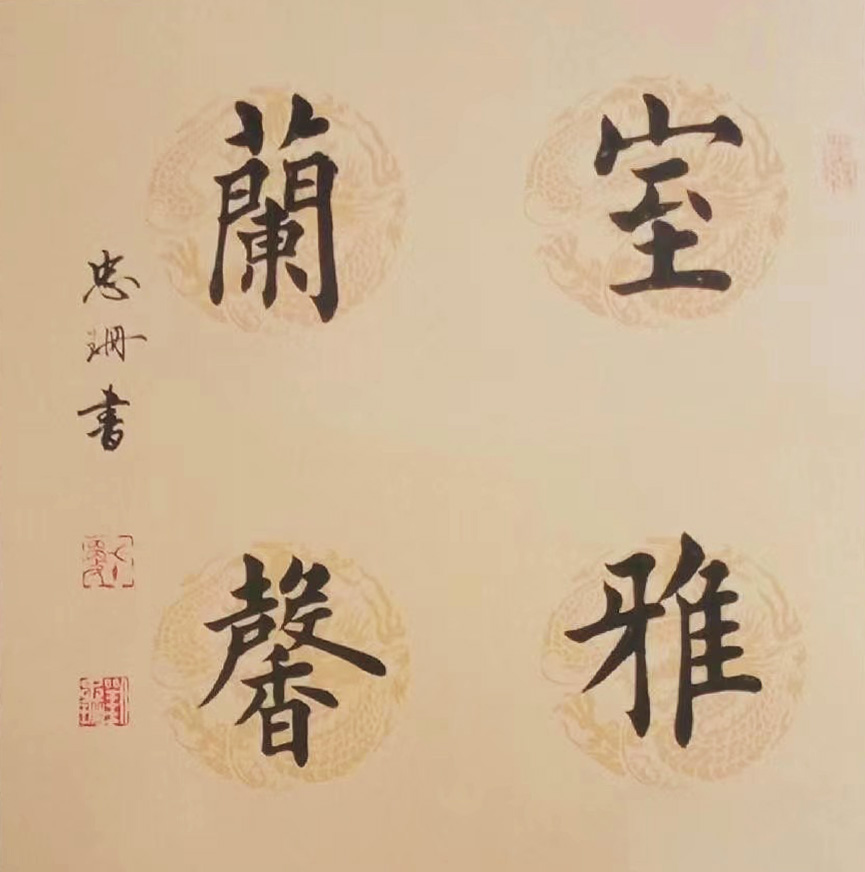 室雅
蘭馨
忠珊書